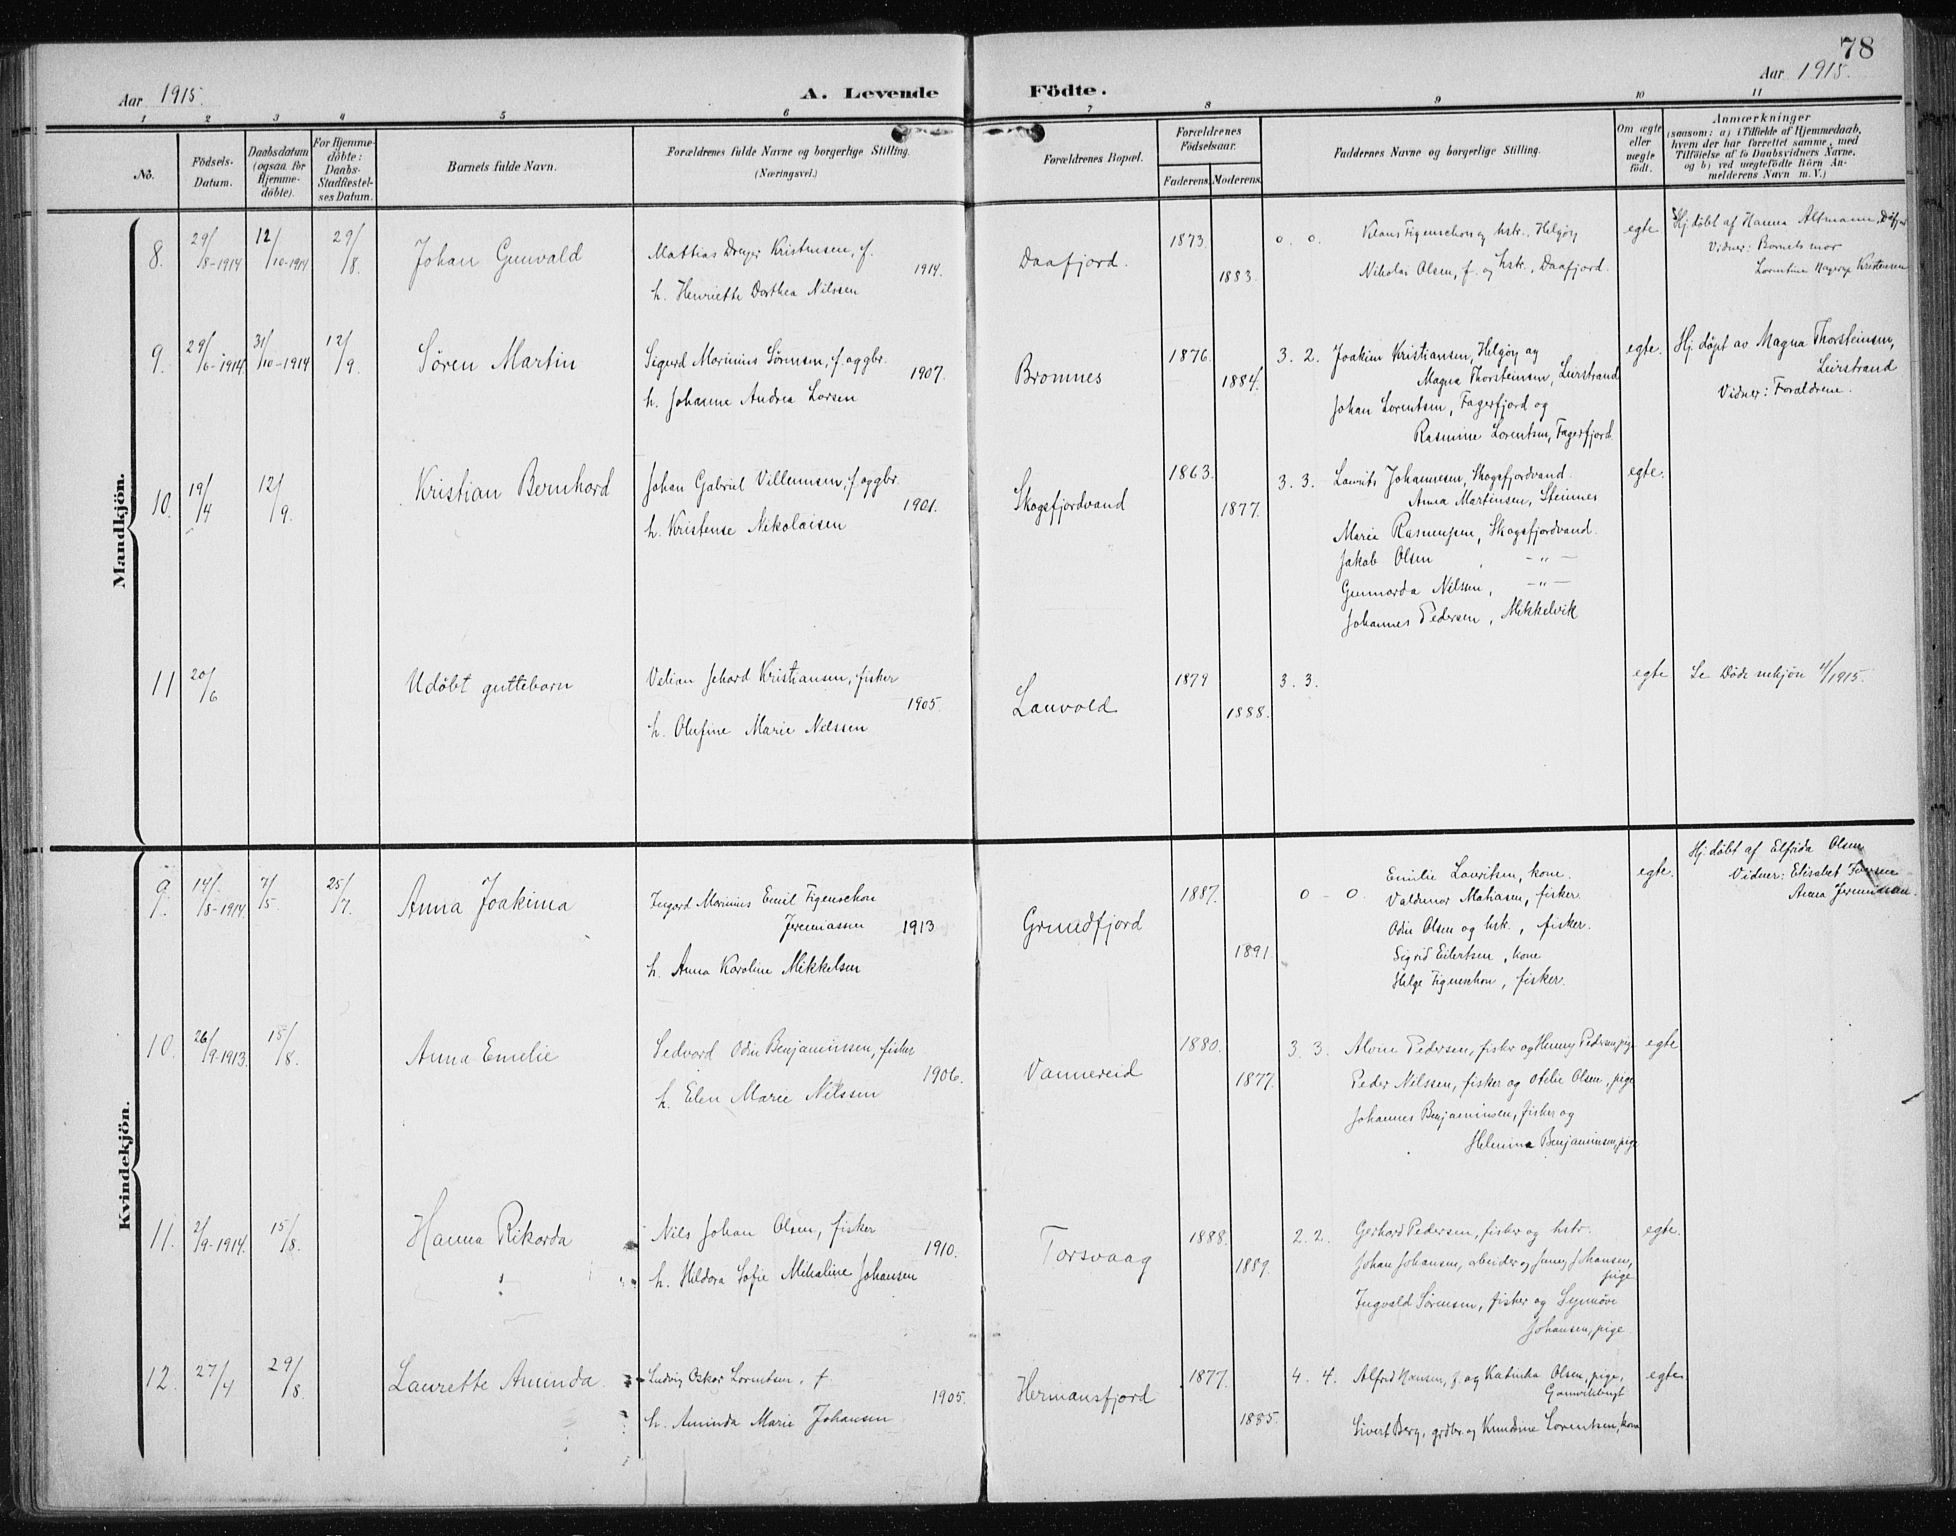 78
Aar 1915.
A. Levende Födte.
Aar 1915.
1 2 3 4 5 6 7 8 9 10 11
No.
Födsels-Datum.
Daabsdatum (ogsaa for Hjemme-döbte).
For Hjemme-döbte: Daabs-Stadfæstel-ses Datum.
Barnets fulde Navn.
Forældrenes fulde Navne og borgerlige Stilling.
(Næringsvei.)
Forældrenes Bopæl.
Forældrenes Födselsaar.
Faderens. Moderens.
Faddernes Navne og borgerlige Stilling.
Om ægte eller uægte födt.
Anmærkninger
(saasom: a) i Tilfælde af Hjemmedaab,
hvem der har forrettet samme, med
Tilföielse af to Daabsvidners Navne,
og b) ved uægtefödte Börn An-
melderens Navn m. V.)
Mandkjön.
8. 29/8-1914 12/10-1914 29/8. Johan Gunvald
Mattias Dreyer Kristensen, f.
1914.
h. Henriette Dorthea Nilssen
Daafjord.
1873. 1883.
0. 0.
Klaus Figenschou og hstr., Helgøy
Nikolai Olsen, f. og hstr., Daafjord.
egte.
Hj. døbt af Hanna Altmann, Dåfjor
Vidner: Barnets mor
Lorentine Hagerup Kristensen
9. 29/6-1914 31/10-1914 12/9. Søren Martin
Sigurd Marinius Sørensen, f. og gbr.
1907.
h. Johanne Andrea Larsen
Bromnes
1876. 1884.
3. 2.
Joakim Kristiansen, Helgøy og
Magna Thorsteinsen, Leirstrand
Johan Lorentsen, Fagerfjord og
Rasmine Lorentsen, Fagerfjord
egte.
Hj. døpt av Magna Thorsteinsen,
Leirstrand
Vidner: Forældrene.
10. 19/4 12/9. Kristian Bernhard
Johan Gabriel Villumsen, f. og gbr.
1901.
h. Kristense Nikolaisen
Skogsfjordvand
1863. 1877.
3. 3.
Laurits Johannesen, Skogsfjordvand.
Anna Martinsen, Steinnes
Marie Rasmussen, Skogsfjordvand.
Jakob Olsen, -"-
Gunnarda Nilsen, -"-
Johannes Pedersen, Mikkelvik
egte.
11 20/6 Udöbt guttebarn
Kristiansen, fisker
1905.
h. Olufine Marie Nilssen
Lanvold
1879 1888.
3. 3.
egte
Se Döde mkjön 4/1915.
Kvindekjön.
9. 14/8-1914. 7/5. 25/7. Anna Joakima
Ingard Marinius Emil Figenschou
Jeremiassen 1913
h. Anna Karoline Mikkelsen
Grundfjord
1887. 1891.
0 - 0.
Emilie Lauritsen, kone.
Valdemar Mathisen, fisker.
Odin Olsen og hstr., fisker.
Sigrid Eilertsen, kone
Helge Figenschou, fisker.
egte.
Hj. døbt af Elfrida Olsen
Vidner: Elisabet
Anna Jeremiassen.
10. 26/9-1913. 15/8. Anna Emelie
Sedvard Odin Benjaminssen, fisker
1906.
h. Elen Marie Nilssen
Vannereid
1880. 1877.
3. 3.
Alvin Pedersen, fisker og Henny Pedersen, pige
Peder Nilssen, fisker og Otelie Olsen, pige
Johannes Benjaminsen, fisker og
Helmina Benjaminsen, pige
egte
11. 2/9-1914. 15/8. Hanna Rikarda
Nils Johan Olsen, fisker
1910.
h. Hildora Sofie Mikaline Johansen
Torsvaag
1888. 1889.
2. 2.
Gerhard Pedersen, fisker og hstr.
Johan Johansen, arbeider og Jenny Johansen,
pige
Ingvald Sørensen, fisker og Synnöve
Johansen, pige
egte.
12. 27/4 29/8. Laurette Aminda.
Ludvig Oskar Lorentsen, f.
1905.
h. Aminda Marie Johansen
Hermansfjord
1877. 1885.
4. 4.
Alfred Hansen, f. og Katinka Olsen, pige,
Gamvikbugt
Sivert Berg, grdbr. og Kundine Lorentsen, kone
egte